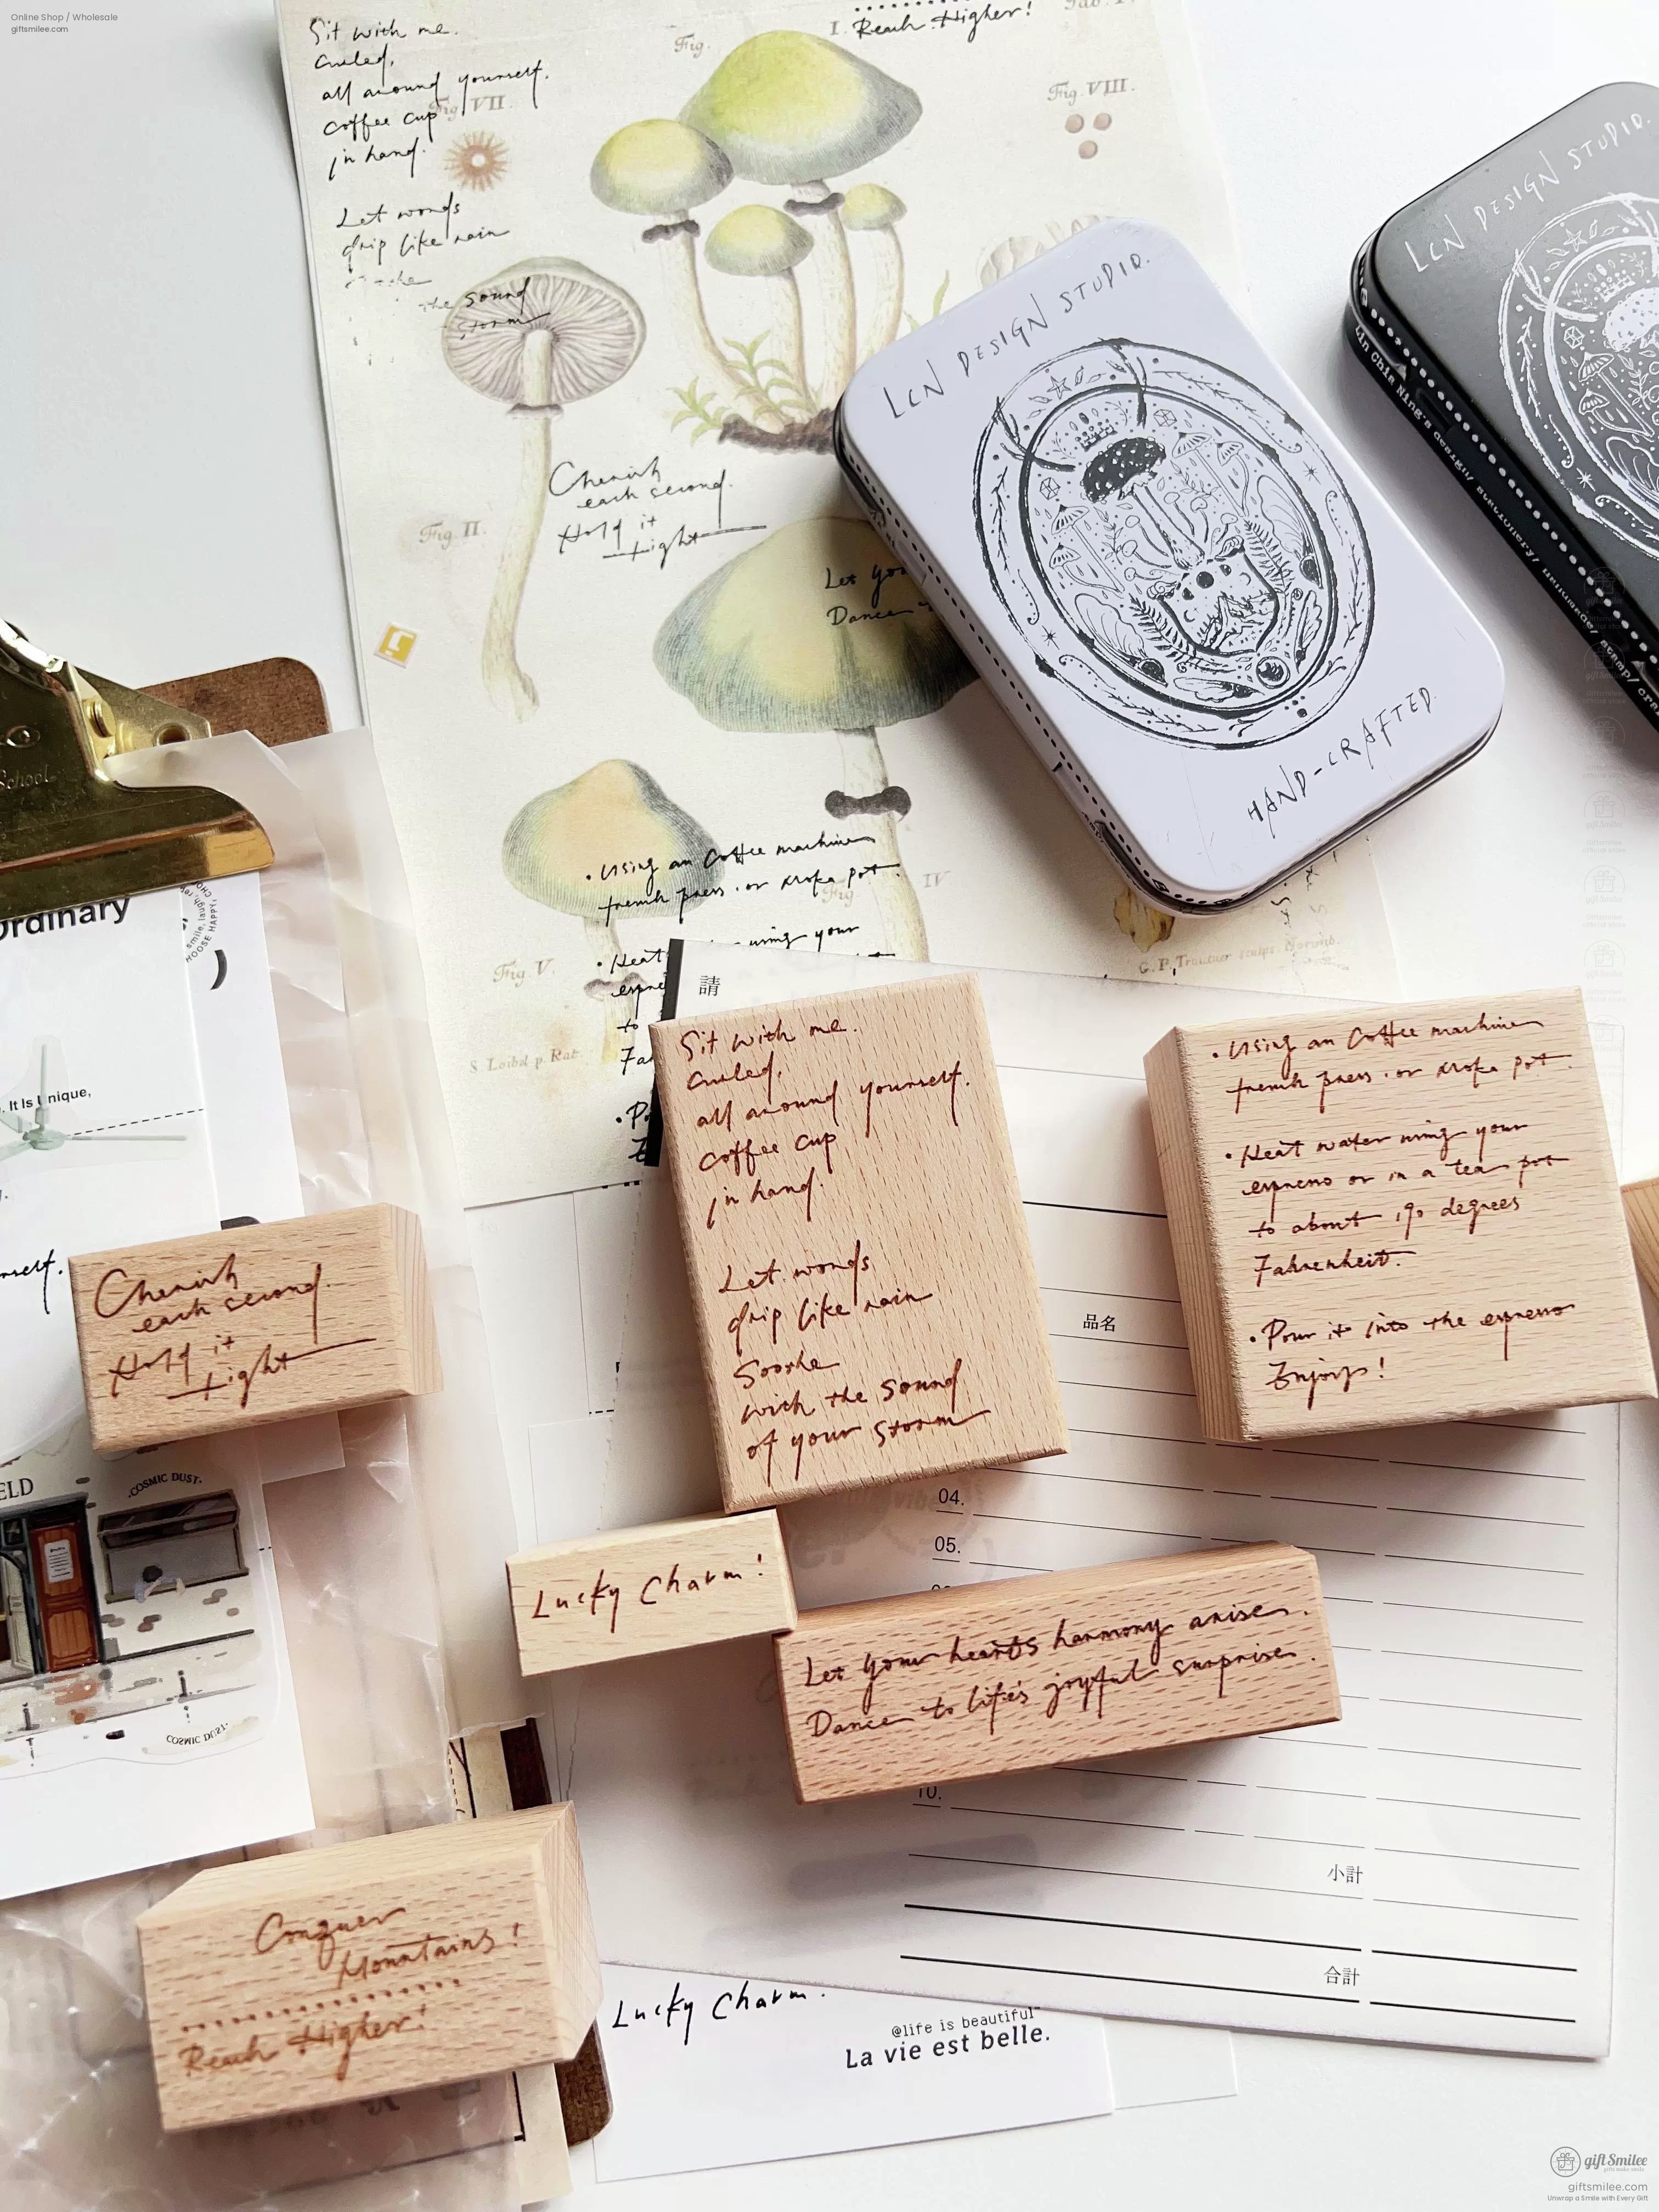 Online Shop / Wholesale
giftsmilee.com
Sit with me.
Curled,
all around yourself.
coffee cup
in hand.
Let words
drip like rain
the sound
storm
Fig.
Fig. VII.
I.
Reach Higher!
Fig. VIII.
Cherish
each second.
Hold it
tight
Fig. II.
Let you
Dance
• Using an Coffee machine
french press . or moka pot .
Fig
IV
• Heat using your
espre
to
Fa
• P
Fig. V.
S. Loibel p. Rat.
LCN DESIGN STUDIO.
HAND-CRAFTED
LCN DESIGN STUDIO.
Lin Chia Ning's design/ stationary/ handmade/ stamp/ cra
School
Ordinary
. It Is Unique,
rself.
ELD
.COSMIC DUST.
COSMIC DUST.
請
Sit with me.
Curled,
all around yourself.
coffee cup
in hand.
Let words
drip like rain
Soothe
with the sound
of your storm
• Using an Coffee machine
french press . or moka pot .
• Heat water using your
espresso or in a tea pot
to about 190 degrees
Fahrenheit.
• Pour it into the espresso
Enjoys!
Cherish
each second.
Hold it
tight
品名
04.
05.
10.
小計
合計
Lucky Charm!
Let your heart's harmony arise.
Dance to life's joyful surprise.
Conquer
Mountains!
Reach Higher!
Lucky Charm.
@life is beautiful
La vie est belle.
gift Smilee
giftsmilee.com
Unwrap a Smile with Every Gift